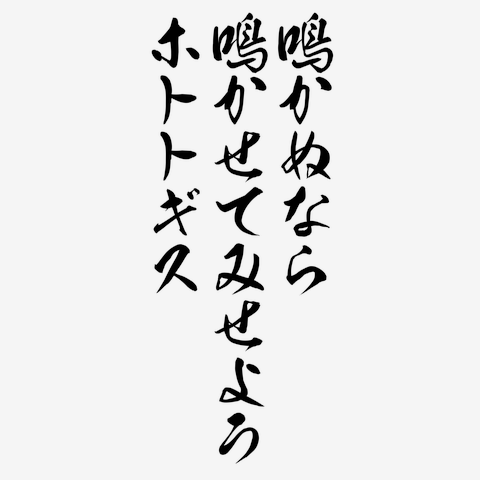 鳴かぬなら
鳴かせてみせよう
ホトトギス